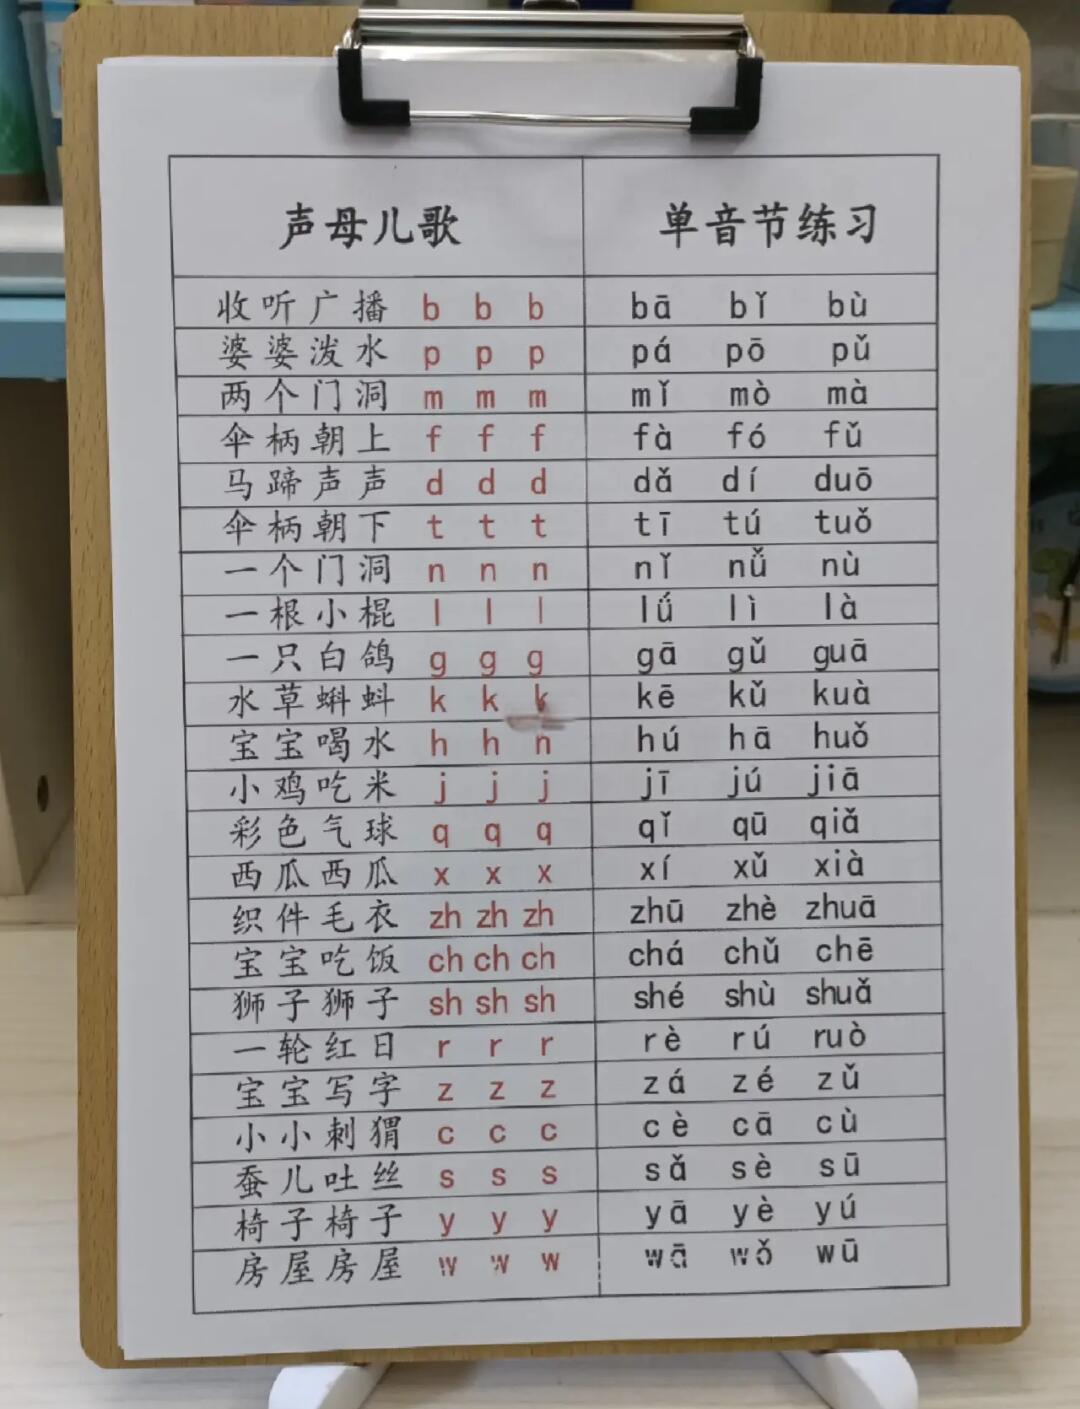 声母儿歌 单音节练习
收听广播 b b b bā bǐ bù
婆婆泼水 p p p pá pō pǔ
两个门洞 m m m mǐ mò mà
伞柄朝上 f f f fà fó fǔ
马蹄声声 d d d dǎ dí duō
伞柄朝下 t t t tī tú tuǒ
一个门洞 n n n nǐ nǚ nù
一根小棍 l l l lǘ lì là
一只白鸽 g g g gā gǔ guā
水草蝌蚪 k k k kē kǔ kuà
宝宝喝水 h h h hú hā huǒ
小鸡吃米 j j j jī jú jiā
彩色气球 q q q qǐ qū qiǎ
西瓜西瓜 x x x xí xǔ xià
织件毛衣 zh zh zh zhū zhè zhuā
宝宝吃饭 ch ch ch chá chǔ chē
狮子狮子 sh sh sh shé shù shuǎ
一轮红日 r r r rè rú ruò
宝宝写字 z z z zá zé zǔ
小小刺猬 c c c cè cā cù
蚕儿吐丝 s s s sǎ sè sū
椅子椅子 y y y yā yè yú
房屋房屋 w w w wā wǒ wū